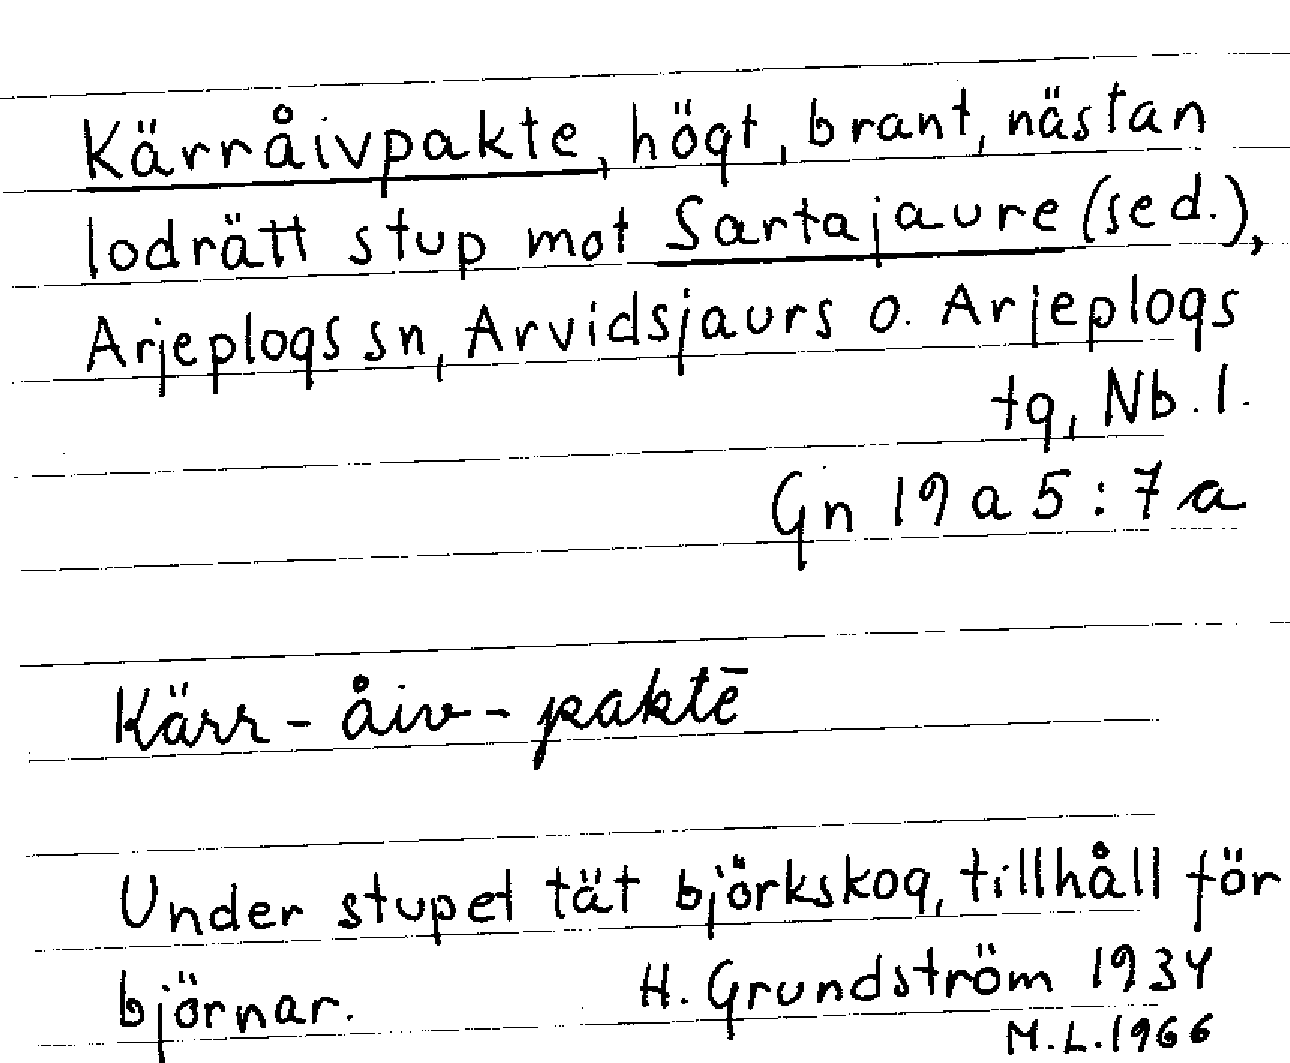 Kärråivpakte, högt, brant, nästan
lodrätt stup mot Sartajaure (sed.),
Arjeplogs sn, Arvidsjaurs o. Arjeplogs
tg, Nb. l.
Gn 19 a 5 : 7 a
Kärr - åiv - paktē
Under stupet tät björkskog, tillhåll för
björnar. H. Grundström 1934
M.L. 1966